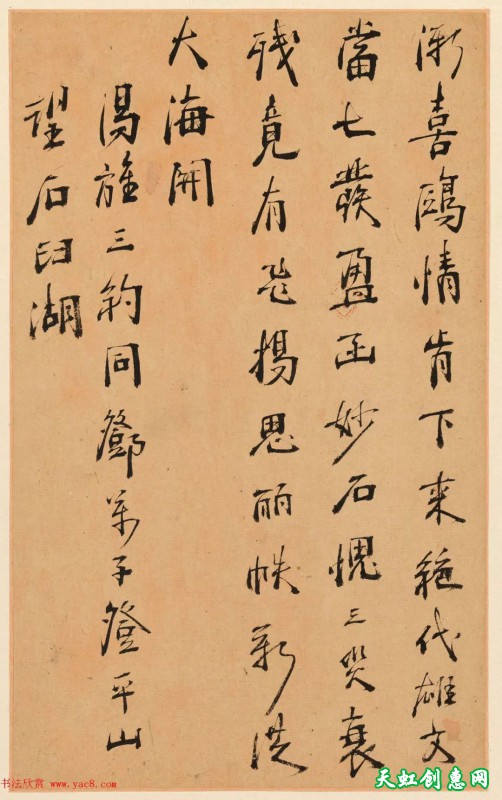 漸喜鷗情肯下来絕代雄文
當七發盈函妙石愧三災衰
殘竟有飛揚思丽帙新從
大海開
湯三約同鄧子登平山
望石臼湖
书法欣赏 www.yac8.com
天虹创惠网